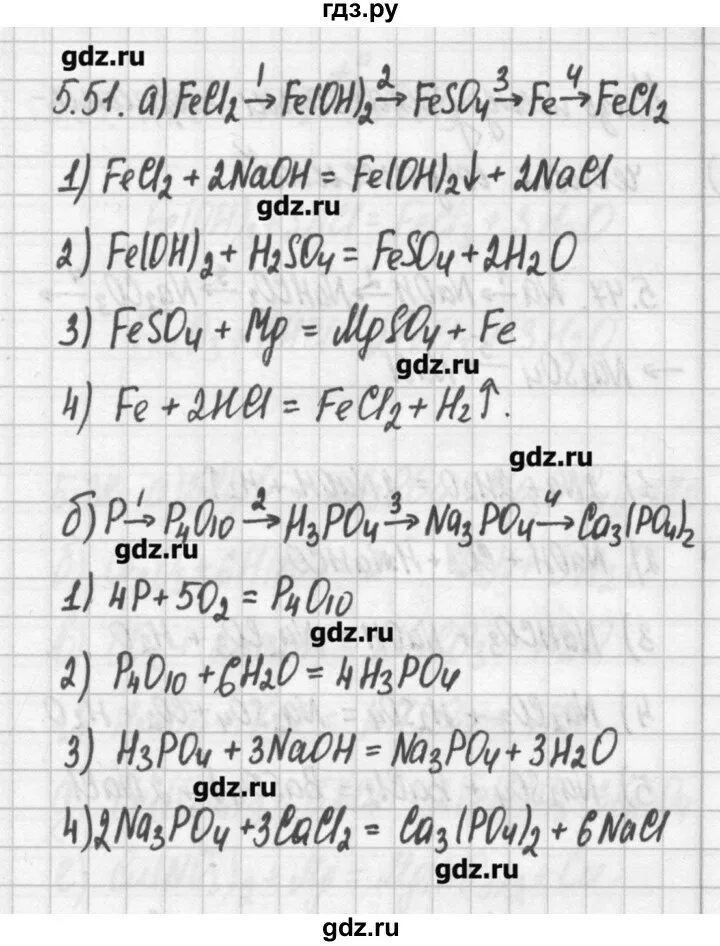 гдз.ру
gdz.ru
5.51. а) FeCl₂ →¹ Fe(OH)₂ →² FeSO₄ →³ Fe →⁴ FeCl₂
1) FeCl₂ + 2NaOH = Fe(OH)₂↓ + 2NaCl
gdz.ru
2) Fe(OH)₂ + H₂SO₄ = FeSO₄ + 2H₂O
3) FeSO₄ + Mg = MgSO₄ + Fe
gdz.ru
4) Fe + 2HCl = FeCl₂ + H₂↑.
gdz.ru
б) P →¹ P₄O₁₀ →² H₃PO₄ →³ Na₃PO₄ →⁴ Ca₃(PO₄)₂
gdz.ru
1) 4P + 5O₂ = P₄O₁₀
gdz.ru
2) P₄O₁₀ + 6H₂O = 4H₃PO₄
3) H₃PO₄ + 3NaOH = Na₃PO₄ + 3H₂O
gdz.ru
4) 2Na₃PO₄ + 3CaCl₂ = Ca₃(PO₄)₂ + 6NaCl
gdz.ru
gdz.ru